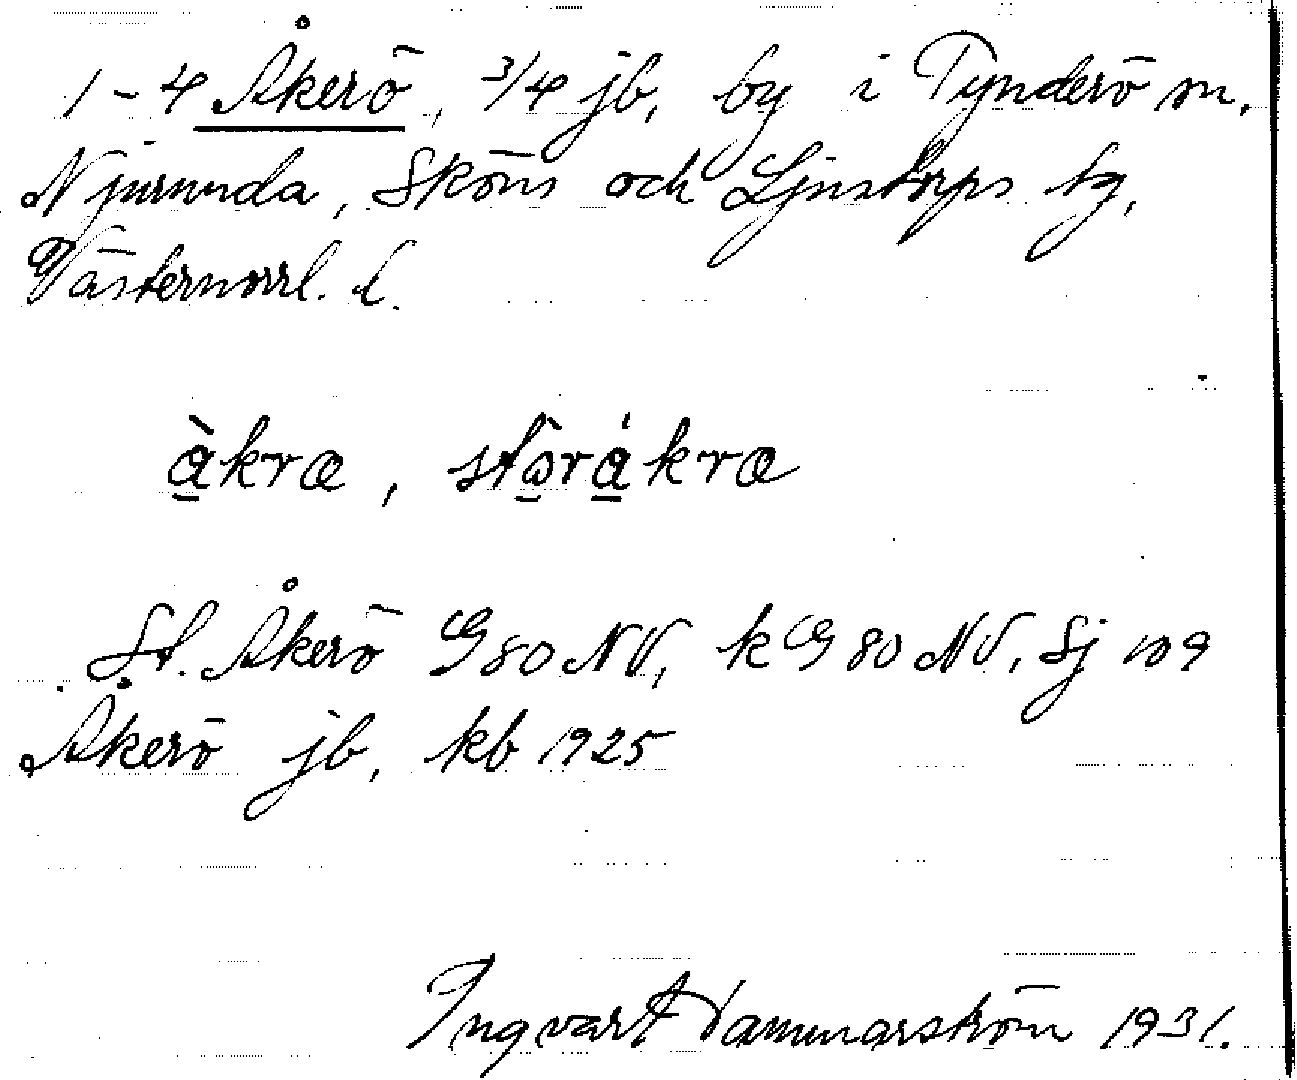 1-4 Åkerö, 3/4 jb, by i Tynderö sn,
Njurunda, Sköns och Ljustorps tg,
Västernorrl. l.
àkræ, stòrákræ
St. Åkerö G80NV, kG80NV, Sj 109
Åkerö jb, kb 1925
Ingvart Hammarström 1931.